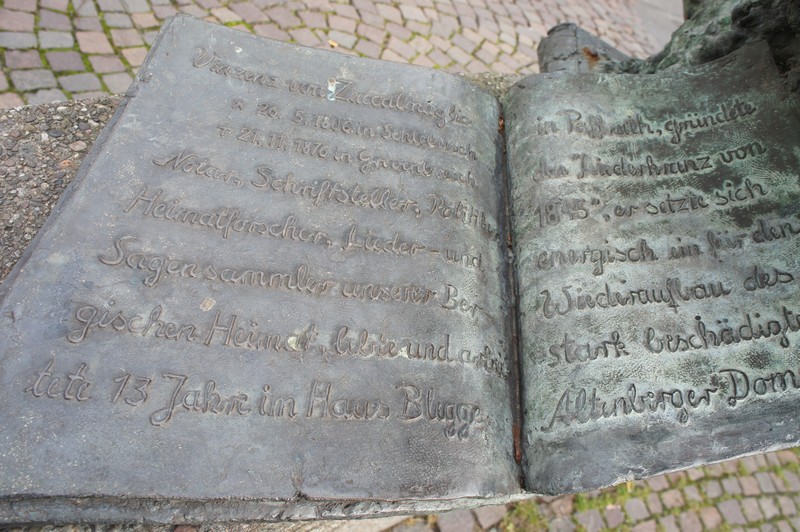 Vinzenz von Zuccalmaglio
* 26. 5. 1806 in Schlebusch
+ 21. 11. 1876 in Grevenbroich
Notar, Schriftsteller, Politiker
Heimatforscher, Lieder- und
Sagensammler unserer Ber-
gischen Heimat, lebte und arbei-
tete 13 Jahre in Haus Blegge
in Paffrath, gründete
den "Liederkranz von
1845", er setzte sich
energisch ein für den
Wiederaufbau des
stark beschädigten
Altenberger Dom